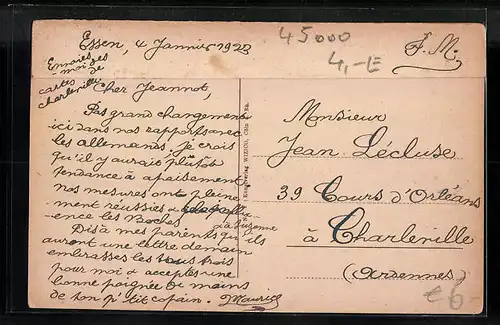 Essen, 4 Janvier 1923
45000
4,-E
F. M.
Envoies
moi des
cartes de
Charleville
Cher Jeannot,
Pas grand changement
ici dans nos rapports avec
les allemands. je crois
qu'il y aurait plutôt
tendance à apaisement
nos mesures ont pleine
ment réussies à
ence les Boches
et à Suzanne
Dis à mes parents qu'ils
auront une lettre demain
embrasses les tous trois
pour moi & acceptes une
bonne poignée de mains
de ton p'tit copain. Maurice
Monsieur
Jean Lécluse
39 Cours d'Orléans
à Charleville
(Ardennes)
€ 6-